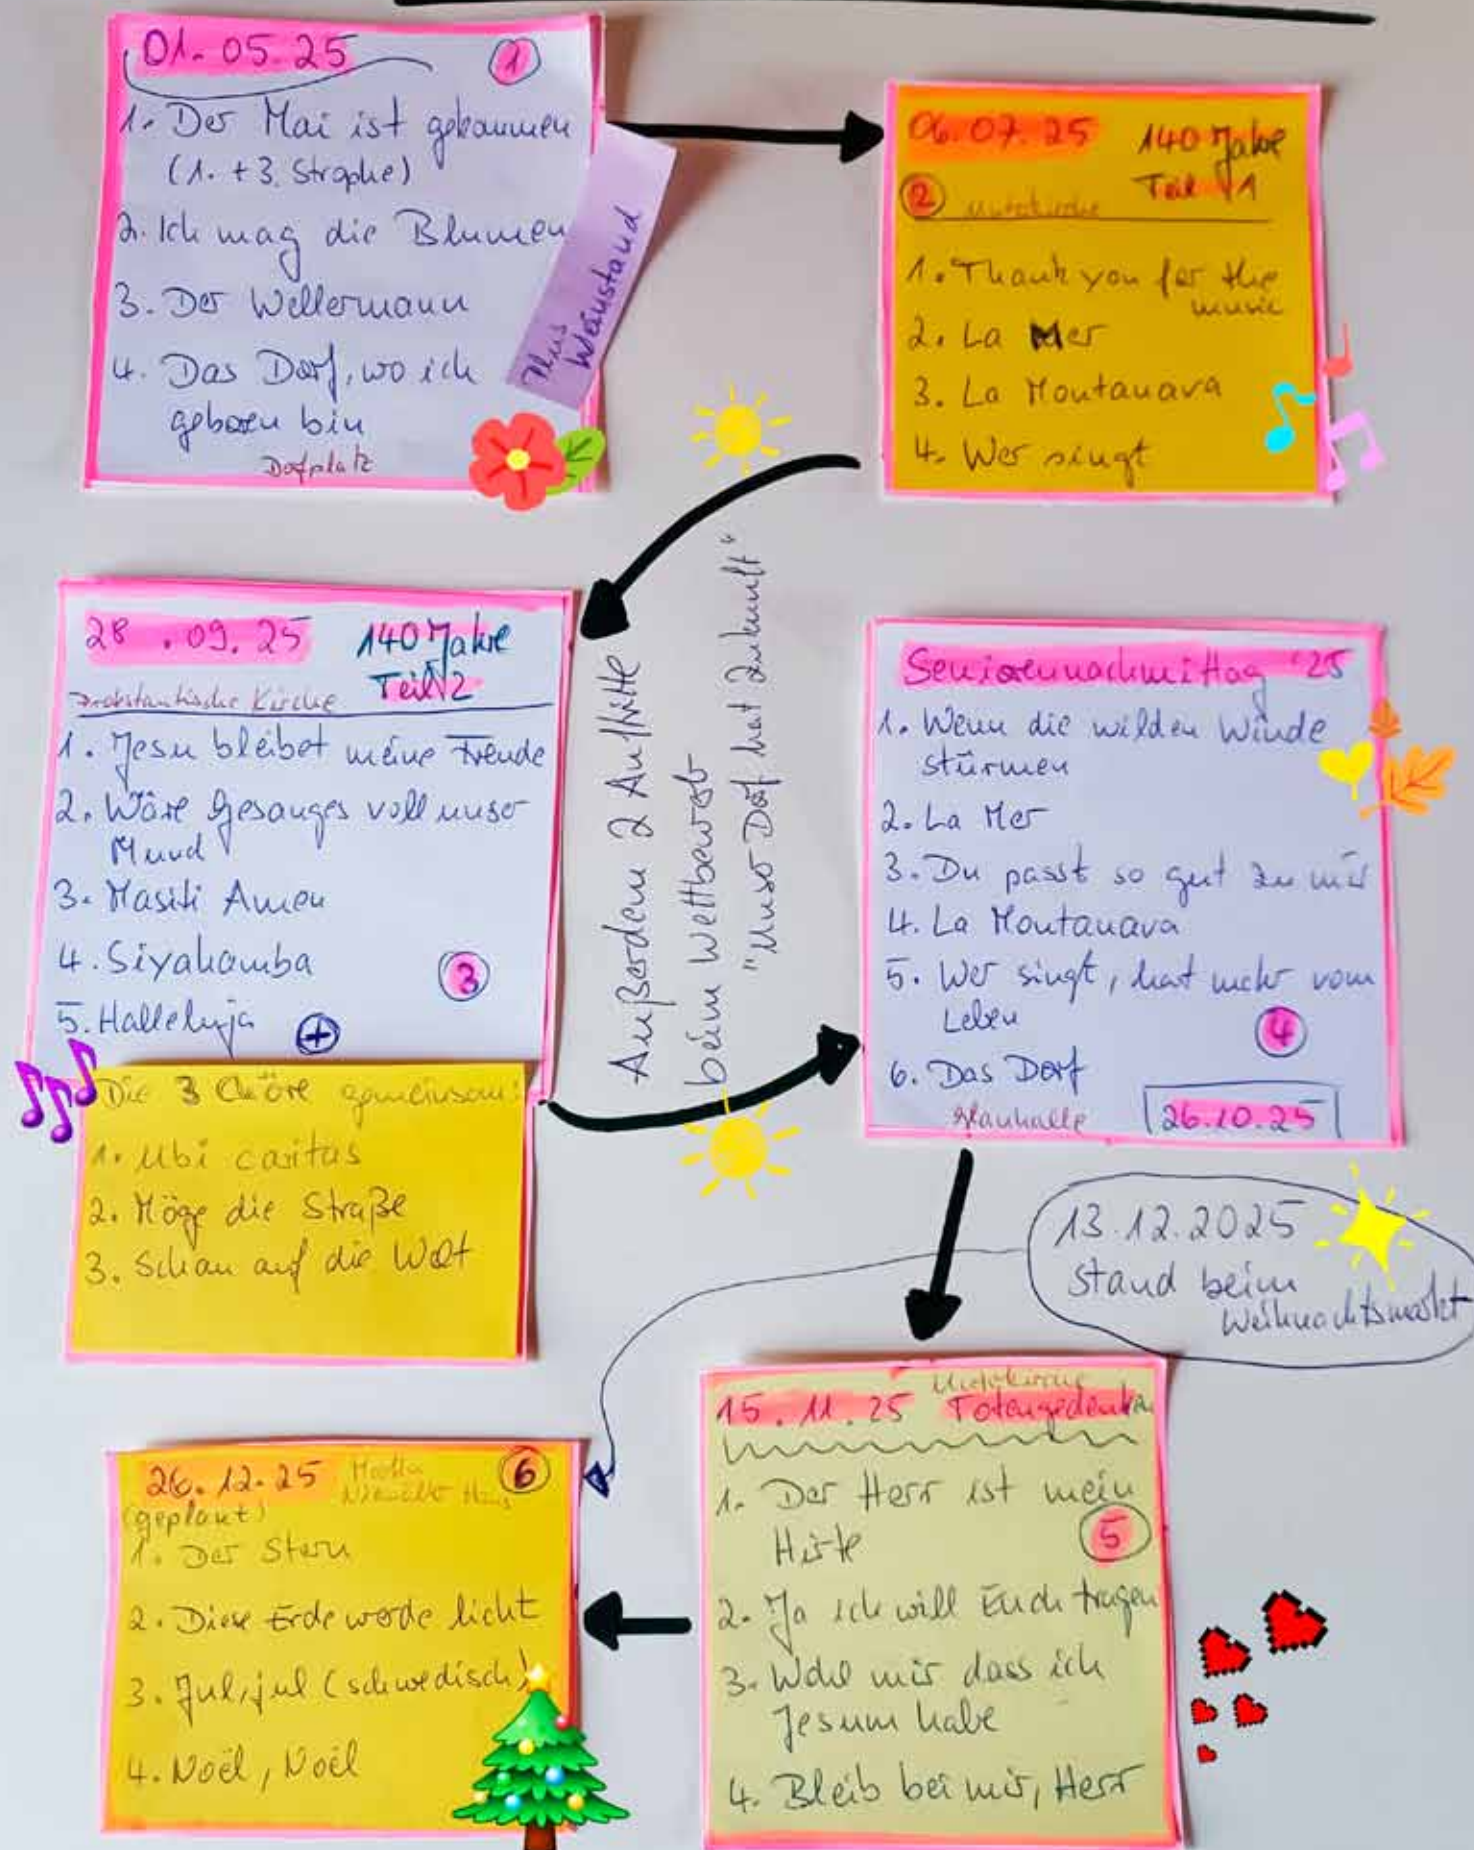 01.05.25
1
1. Der Mai ist gekommen
(1. + 3. Strophe)
2. Ich mag die Blumen
3. Der Wellermann
4. Das Dorf, wo ich
geboren bin
Dorfplatz
Plus
Weinstand
06.07.25 140 Jahre
Teil 1
2
1. Thank you for the
music
2. La Mer
3. La Montanara
4. Wer singt
28.09.25 140 Jahre
Teil 2
Protestantische Kirche
1. Jesu bleibet meine Freude
2. Wäre Gesanges voll unser
Mund
3. Masiti Amen
4. Siyahamba
3
5. Halleluja +
Die 3 Chöre gemeinsam:
1. Ubi caritas
2. Möge die Straße
3. Schau auf die Welt
Außerdem 2 Auftritte
beim Wettbewerb
"Unser Dorf hat Zukunft"
Seniorennachmittag '25
1. Wenn die wilden Winde
stürmen
2. La Mer
3. Du passt so gut zu mir
4. La Montanara
5. Wer singt, hat mehr vom
Leben
4
6. Das Dorf
26.10.25
13.12.2025
Stand beim
Weihnachtsmarkt
15.11.25 Totengedenken
1. Der Herr ist mein
Hirte
5
2. Ja ich will Euch tragen
3. Wohl mir dass ich
Jesum habe
4. Bleib bei mir, Herr
26.12.25
6
(geplant)
1. Der Stern
2. Diese Erde werde licht
3. Jul, jul (schwedisch)
4. Noël, Noël